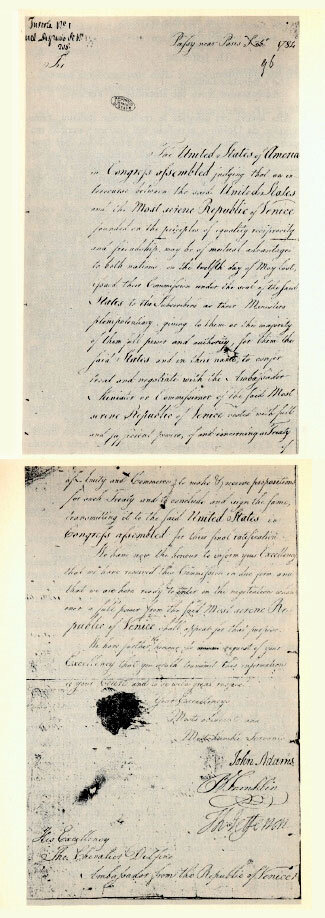 Passy near Paris 1784
96
Sir
The United States of America
in Congress assembled judging that an in-
tercourse between the said United States
and the Most serene Republic of Venice
founded on the principles of equality reciprocity
and friendship may be of mutual advantage
to both nations on the twelfth day of May last,
issued their Commission under the seal of the said
States to the Subscribers as their Ministers
plenipotentiary, giving to them or the majority
of them full power and authority, for them the
said States and in their name, to confer
treat and negotiate with the Ambassador
Minister or Commissioner of the said Most
serene Republic of Venice vested with full
and powers, of and concerning a Treaty
of Amity and Commerce, to make & receive propositions
for such Treaty and to conclude and sign the same,
transmitting it to the said United States in
Congress assembled for their final ratification.
We have now the honour to inform your Excellency
that we have received this Commission in due form and
that we are here ready to enter on the negotiation
a full power from the said Most serene Re-
public of Venice shall appear for that purpose.
We have further to request of your
Excellency that you would transmit this information
to your Court
Your Excellency's
Most obedient and
Most humble Servants
John Adams
B Franklin
Th: Jefferson
His Excellency
The Chevalier Delfino
Ambassador from the Republic of Venice